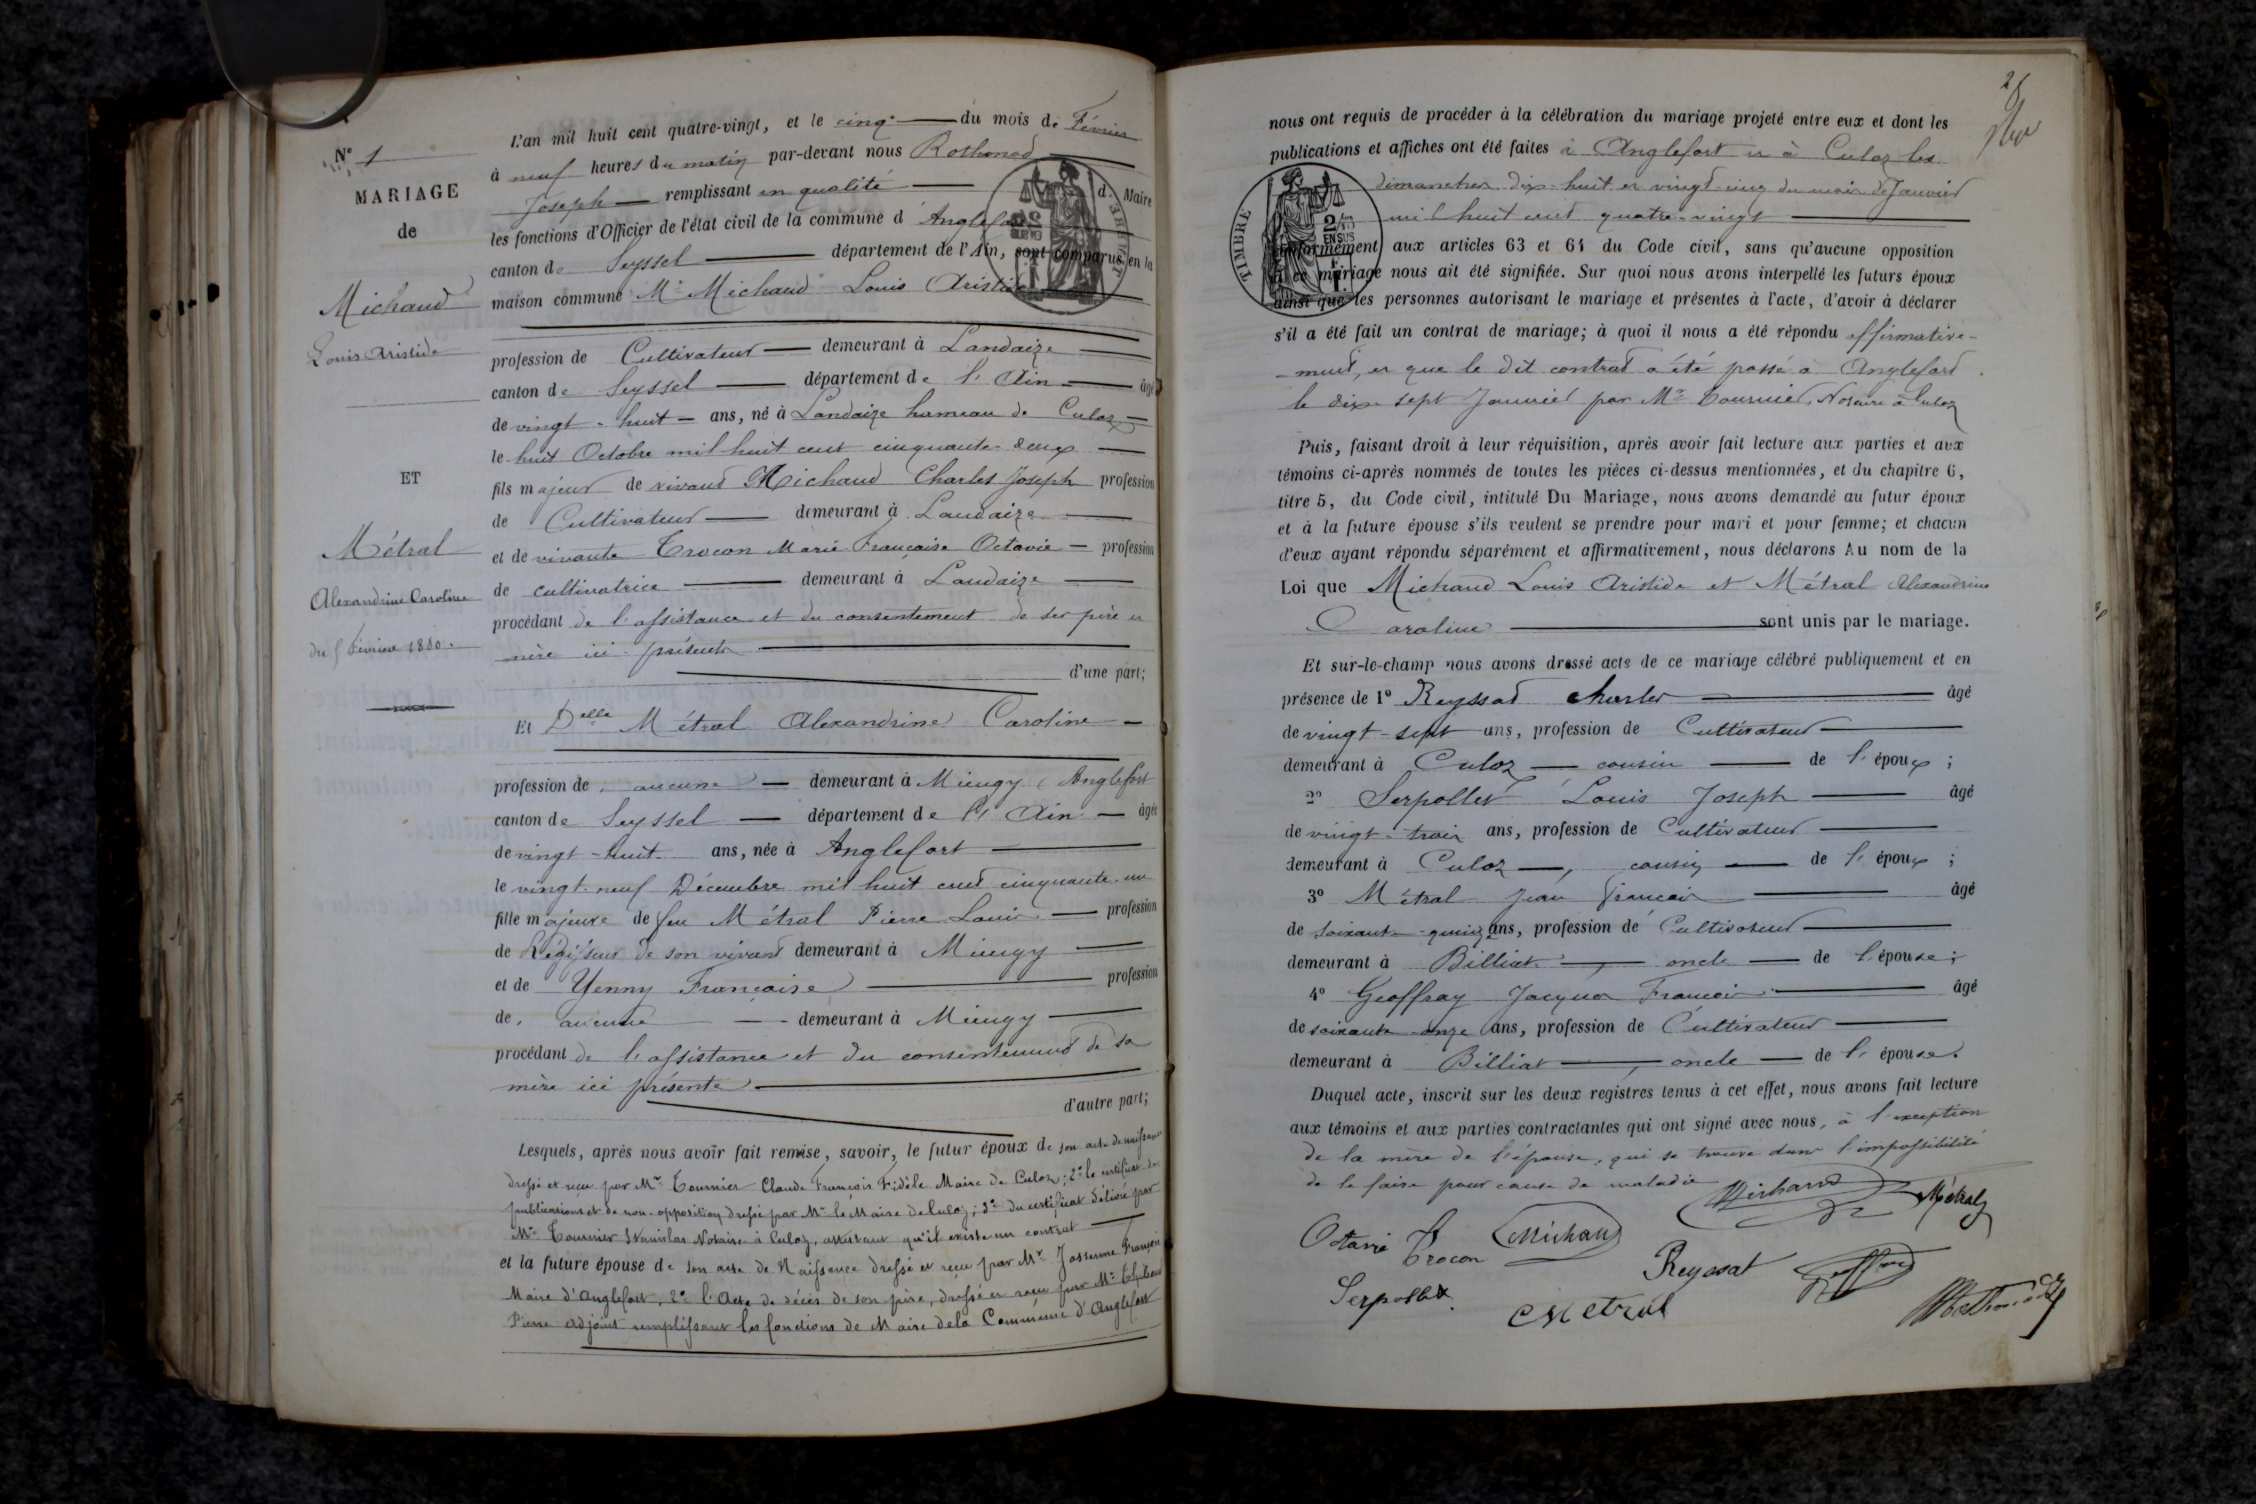 N° 1
MARIAGE
de
Michaud
Louis Aristide
ET
Métral
Alexandrine Caroline
du 5 Février 1880.
L'an mil huit cent quatre-vingt, et le cinq du mois de Février
à neuf heures du matin par-devant nous Rothonod
Joseph remplissant en qualité de Maire
les fonctions d'Officier de l'état civil de la commune d'Anglefort
canton de Seyssel département de l'Ain, sont comparus en la
maison commune Mr Michaud Louis Aristide
profession de Cultivateur demeurant à Landaize
canton de Seyssel département de l'Ain âgé
de vingt-huit ans, né à Landaize hameau de Culoz
le huit Octobre mil huit cent cinquante-deux
fils majeur de vivant Michaud Charles Joseph profession
de Cultivateur demeurant à Landaize
et de vivante Trocon Marie Françoise Octavie profession
de cultivatrice demeurant à Landaize
procédant de l'assistance et du consentement de ses père et
mère ici présents
d'une part;
Et Delle Métral Alexandrine Caroline
profession de aucune demeurant à Mieugy (Anglefort
canton de Seyssel département de l'Ain âgée
de vingt-huit ans, née à Anglefort
le vingt-neuf Décembre mil huit cent cinquante-un
fille majeure de feu Métral Pierre Louis profession
de Régisseur de son vivant demeurant à Mieugy
et de Yenny Françoise profession
de aucune demeurant à Mieugy
procédant de l'assistance et du consentement de sa
mère ici présente
d'autre part;
Lesquels, après nous avoir fait remise, savoir, le futur époux de son acte de naissance
dressé et reçu par Mr Tournier Claude François Fidèle Maire de Culoz; 2° le certificat de
publications et de non-opposition dressé par Mr le Maire de Culoz; 3° du certificat délivré par
Me Tournier Stanislas Notaire à Culoz, attestant qu'il existe un contrat
et la future épouse de son acte de Naissance dressé et reçu par Mr Josserme François
Maire d'Anglefort, 2° l'Acte de décès de son père, dressé et reçu par Mr
Pierre adjoint remplissant les fonctions de Maire de la Commune d'Anglefort
nous ont requis de procéder à la célébration du mariage projeté entre eux et dont les
publications et affiches ont été faites à Anglefort et à Culoz les
dimanches dix-huit et vingt-cinq du mois de Janvier
mil huit cent quatre-vingt
TIMBRE
conformément aux articles 63 et 64 du Code civil, sans qu'aucune opposition
à ce mariage nous ait été signifiée. Sur quoi nous avons interpellé les futurs époux
ainsi que les personnes autorisant le mariage et présentes à l'acte, d'avoir à déclarer
s'il a été fait un contrat de mariage; à quoi il nous a été répondu affirmative-
-ment, et que le dit contrat a été passé à Anglefort
le dix sept Janvier par Me Tournier, Notaire à Culoz
Puis, faisant droit à leur réquisition, après avoir fait lecture aux parties et aux
témoins ci-après nommés de toutes les pièces ci-dessus mentionnées, et du chapitre 6,
titre 5, du Code civil, intitulé Du Mariage, nous avons demandé au futur époux
et à la future épouse s'ils veulent se prendre pour mari et pour femme; et chacun
d'eux ayant répondu séparément et affirmativement, nous déclarons Au nom de la
Loi que Michaud Louis Aristide et Métral Alexandrine
Caroline sont unis par le mariage.
Et sur-le-champ nous avons dressé acte de ce mariage célébré publiquement et en
présence de 1° Reyssat Charles âgé
de vingt-sept ans, profession de Cultivateur
demeurant à Culoz cousin de l'époux;
2° Serpollet Louis Joseph âgé
de vingt-trois ans, profession de Cultivateur
demeurant à Culoz, cousin de l'époux;
3° Métral Jean François âgé
de soixante-quinze ans, profession de Cultivateur
demeurant à Billiat, oncle de l'épouse;
4° Geoffray Jacques François âgé
de soixante-onze ans, profession de Cultivateur
demeurant à Billiat, oncle de l'épouse.
Duquel acte, inscrit sur les deux registres tenus à cet effet, nous avons fait lecture
aux témoins et aux parties contractantes qui ont signé avec nous, à l'exception
de la mère de l'épouse, qui se trouve dans l'impossibilité
de le faire pour cause de maladie
Michaud Métral
Octavie Trocon Michaud
Serpollet Reyssat Geoffray
Métral Rothonod